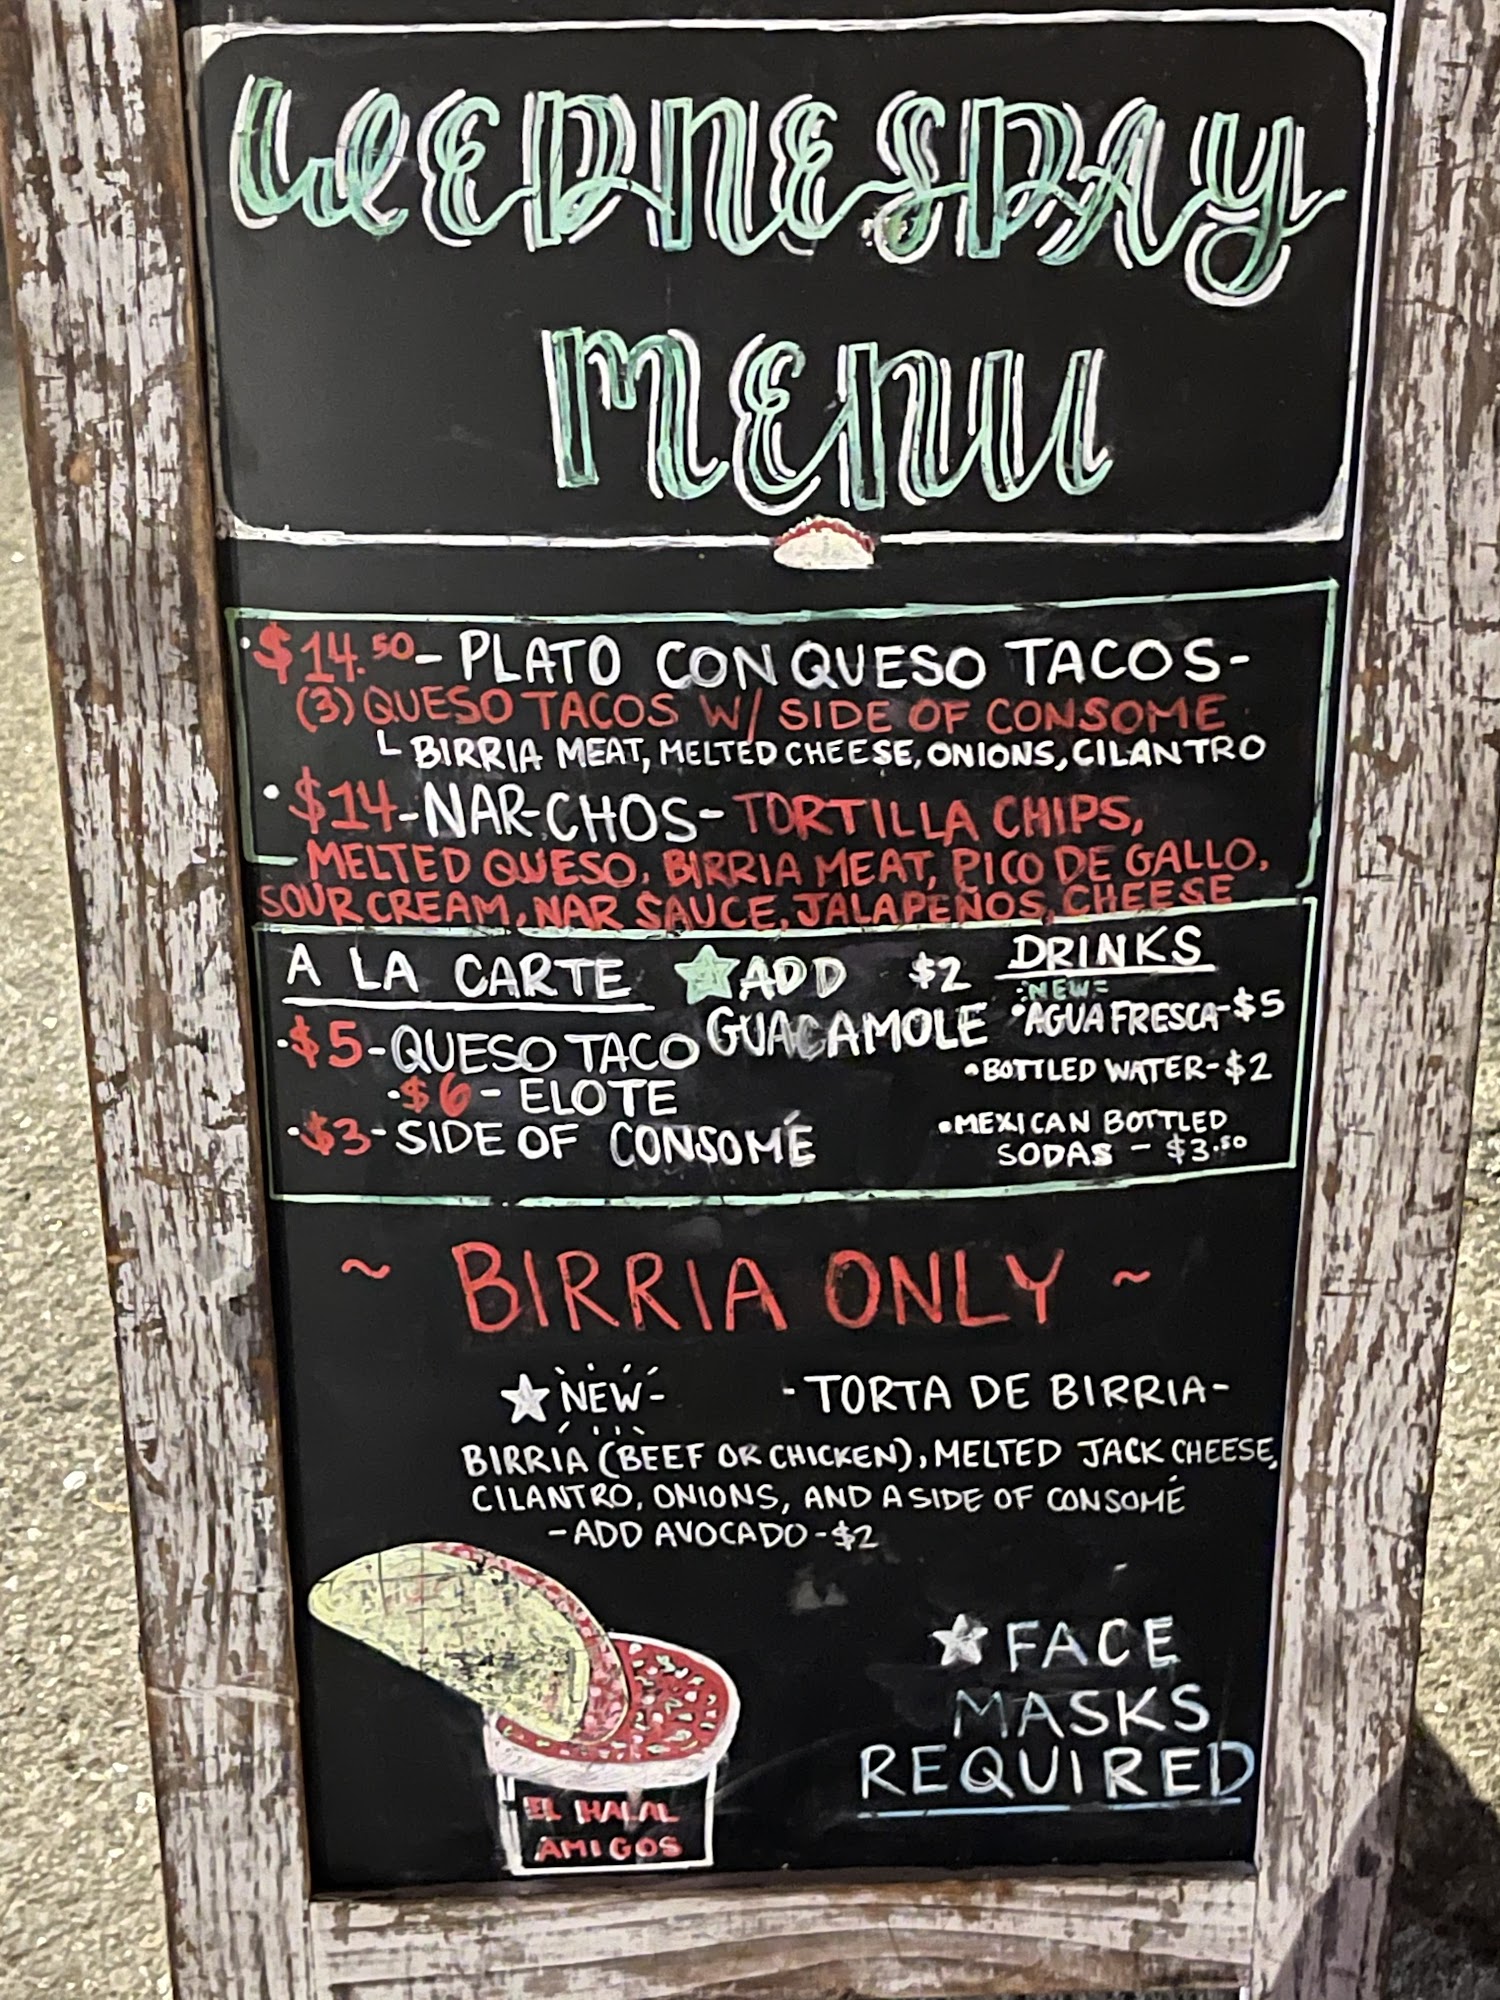 WEDNESDAY
MENU
• $14.50 - PLATO CON QUESO TACOS -
(3) QUESO TACOS W/ SIDE OF CONSOME
└ BIRRIA MEAT, MELTED CHEESE, ONIONS, CILANTRO
• $14 - NAR-CHOS - TORTILLA CHIPS,
MELTED QUESO, BIRRIA MEAT, PICO DE GALLO,
SOUR CREAM, NAR SAUCE, JALAPEÑOS, CHEESE
A LA CARTE
• $5 - QUESO TACO
• $6 - ELOTE
• $3 - SIDE OF CONSOMÉ
★ ADD $2
GUACAMOLE
DRINKS
NEW
• AGUA FRESCA - $5
• BOTTLED WATER - $2
• MEXICAN BOTTLED
SODAS - $3.50
~ BIRRIA ONLY ~
★ NEW - - TORTA DE BIRRIA -
BIRRIA (BEEF OR CHICKEN), MELTED JACK CHEESE,
CILANTRO, ONIONS, AND A SIDE OF CONSOMÉ
- ADD AVOCADO - $2
★ FACE
MASKS
REQUIRED
EL HALAL
AMIGOS